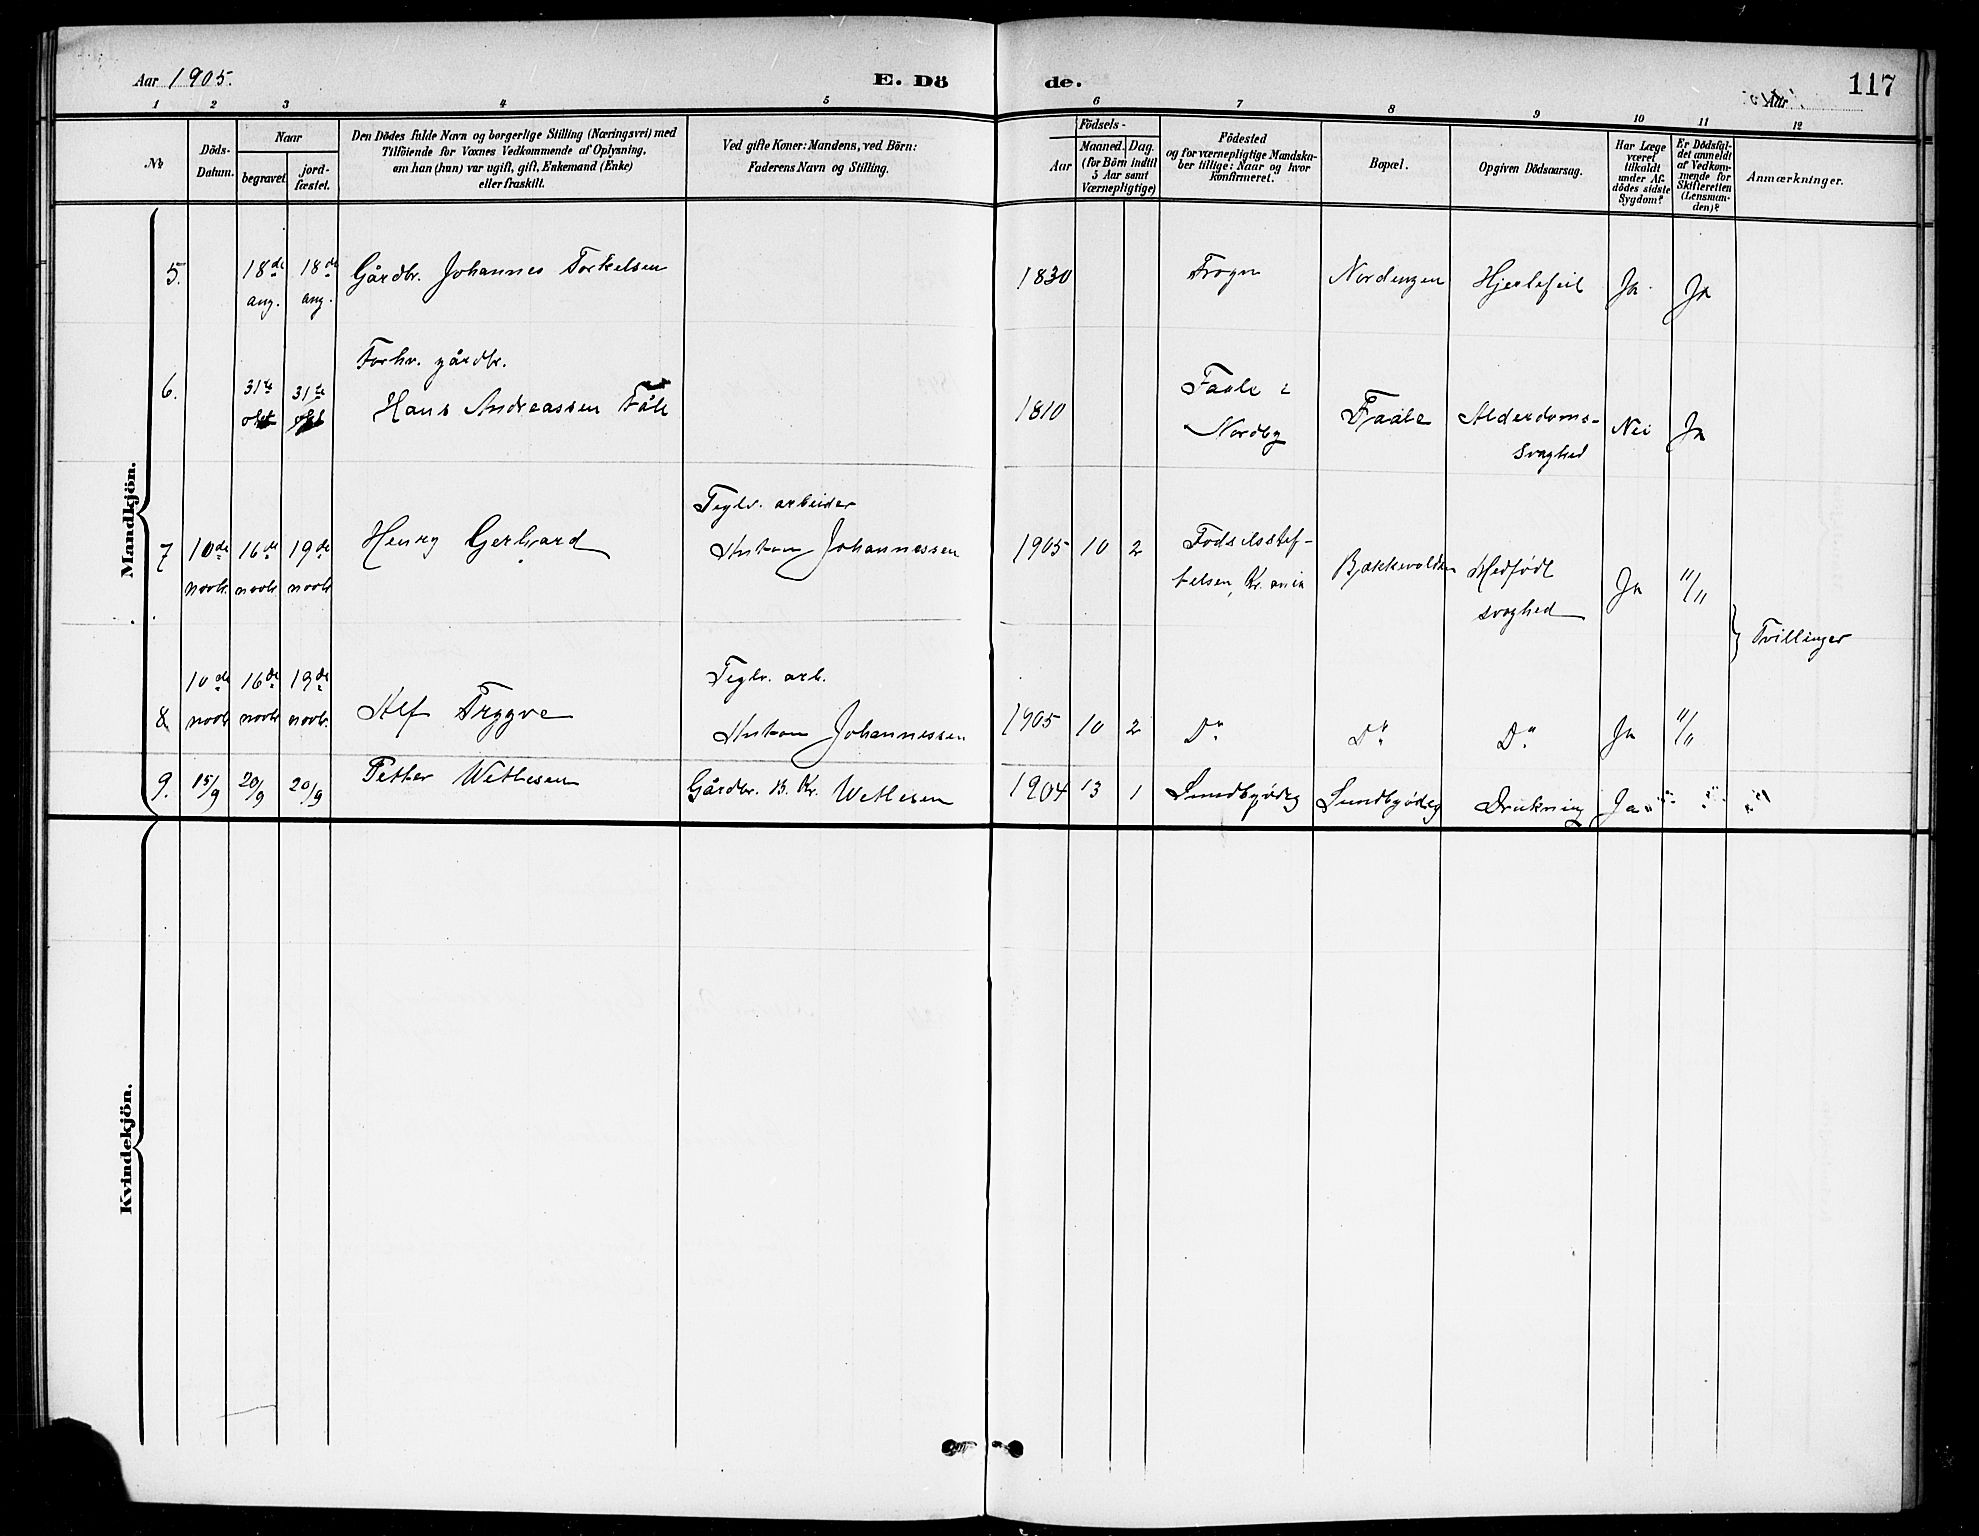 Aar 1905.
E. Dö de.
117
Aar
1 2 3 4 5 6 7 8 9 10 11 12
No
Döds-Datum.
Naar
begravet.
jord-fæstet.
Den Dödes fulde Navn og borgerlige Stilling (Næringsvei) med
Tilföiende for Voxnes Vedkommende af Oplysning,
om han (hun) var ugift, gift, Enkemand (Enke)
eller fraskilt.
Ved gifte Koner: Mandens, ved Börn:
Faderens Navn og Stilling.
Födsels-
Aar
Maaned. Dag.
(for Börn indtil
5 Aar samt
Værnepligtige)
Födested
og for værnepligtige Mandska-
ber tillige: Naar og hvor
konfirmeret.
Bopæl.
Opgiven Dödsaarsag.
Har Læge
været
tilkaldt
under Af-
dödes sidste
Sygdom?
Er Dödsfal-
det anmeldt
af Vedkom-
mende for
Skifteretten
(Lensman-
den)?
Anmærkninger.
Mandkjön.
5. 18de aug. 18de aug. Gårdbr. Johannes Torkelsen 1830 Frogn Nordengen Hjertefeil Ja Ja
Forhv. gårdbr.
6. 31te okt 31te okt Hans Andreassen Fåle 1810 Faale i Nordby Faale Alderdoms-
svaghed Nei Ja
Teglv. arbeider
7 10de novbr. 16de novbr 19de novbr Henry Gerhard Anton Johannessen 1905 10 2 Fødselsstif-
telsen, Kr.ania Bækkevolden Medfødt
svaghed Ja "/"
} Tvillinger
Teglv. arb.
8 10de novbr 16de novbr 19de novbr. Alf Trygve Anton Johannessen 1905 10 2 Do Do Do Ja "/"
9. 15/9 20/9 20/9 Petter Wetlesen Gårdbr. B. Kr. Wetlesen 1904 13 1 Sundbyødeg Sundbyødeg Drukning Ja
Kvindekjön.